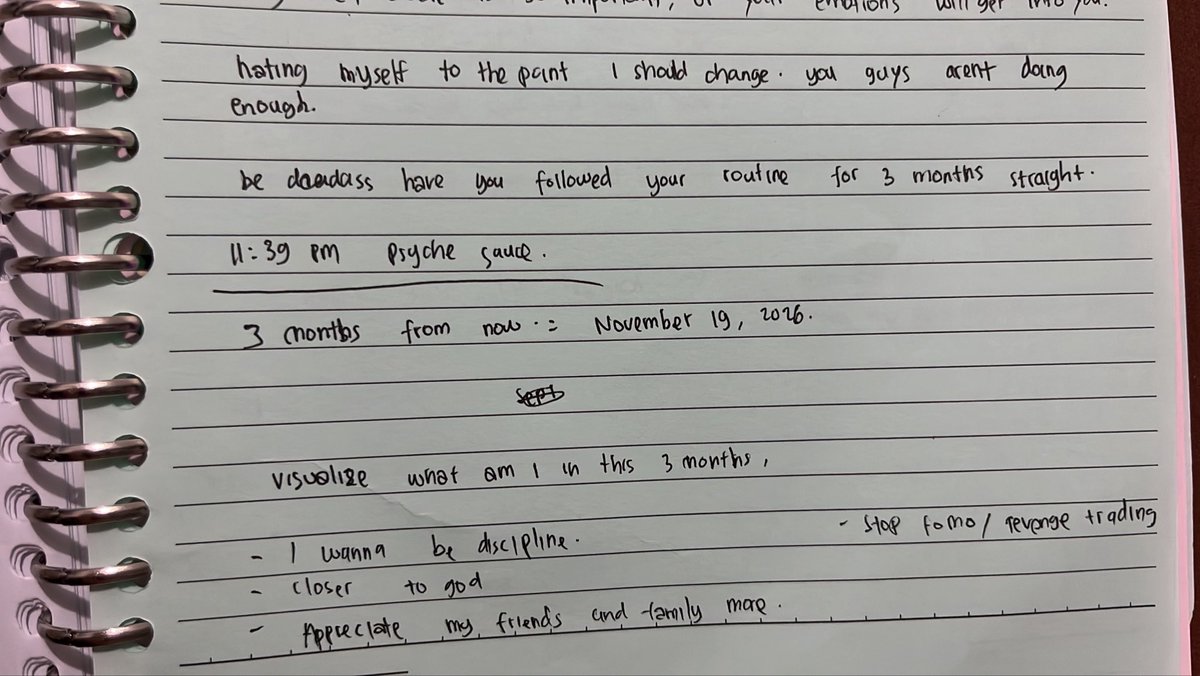 important, or your emotions will get into you.
hating myself to the point I should change. you guys arent doing
enough.
be deadass have you followed your routine for 3 months straight.
11:39 pm psyche sauce.
3 months from now := November 19, 2026.
visualize what am I in this 3 months,
- I wanna be discipline.
- stop fomo/ revenge trading
- closer to god
- Appreciate my friends and family more.